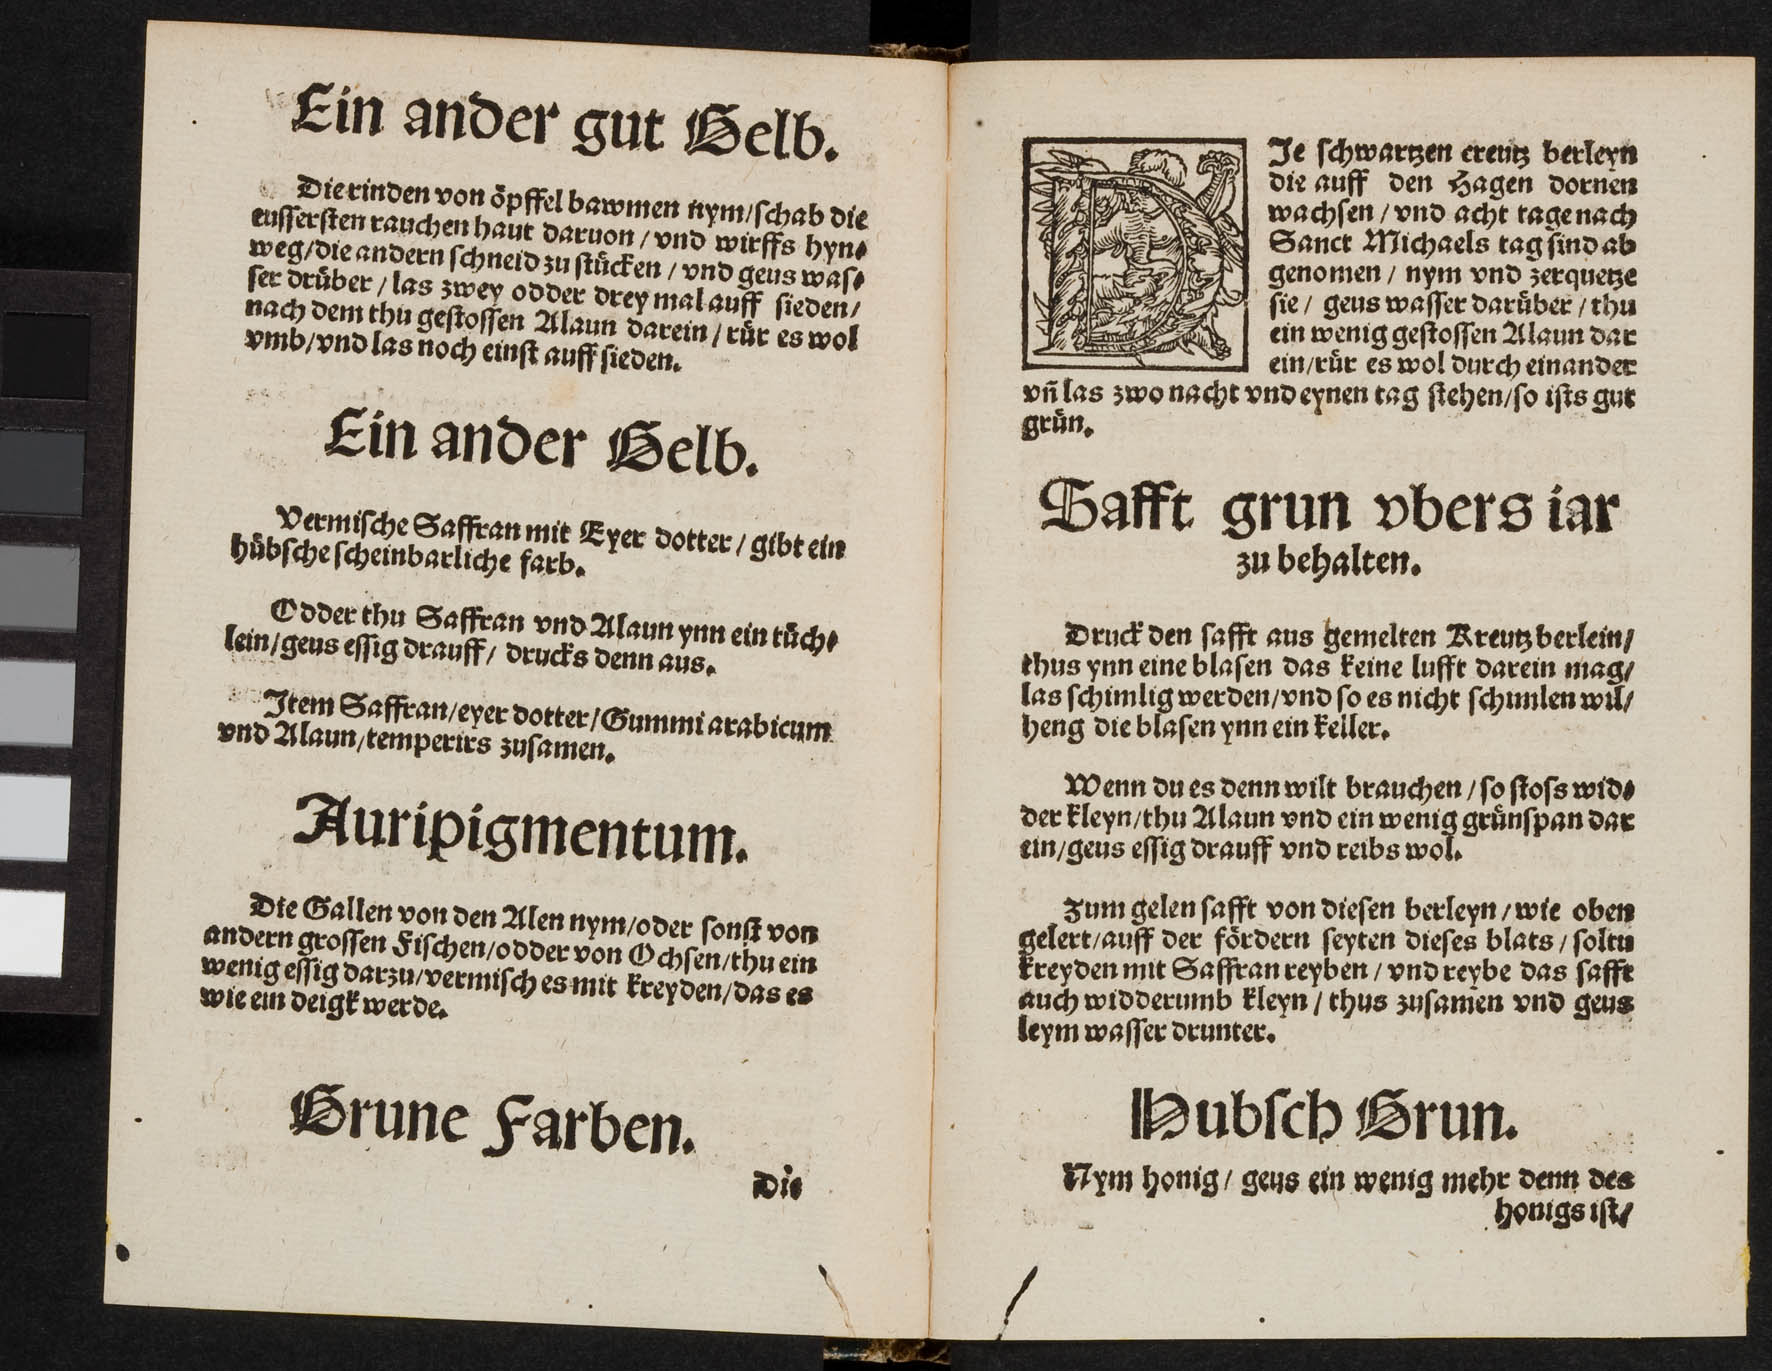 Ein ander gut Gelb.
Die rinden von öpffel bawmen nym/schab die
eussersten rauchen haut daruon/vnd wirffs hyn⸗
weg/die andern schneid zu stücken/vnd geus was⸗
ser drüber/las zwey odder drey mal auff sieden/
nach dem thu gestossen Alaun darein/rür es wol
vmb/vnd las noch einst auff sieden.
Ein ander Gelb.
Vermische Saffran mit Eyer dotter/gibt ein
hübsche scheinbarliche farb.
Odder thu Saffran vnd Alaun ynn ein tüch⸗
lein/geus essig drauff/drucks denn aus.
Item Saffran/eyer dotter/Gummi arabicum
vnd Alaun/temperirs zusamen.
Auripigmentum.
Die Gallen von den Alen nym/oder sonst von
andern grossen Fischen/odder von Ochsen/thu ein
wenig essig darzu/vermisch es mit kreyden/das es
wie ein deigk werde.
Grune Farben.
Die
DIe schwartzen creutz berleyn
die auff den Hagen dornen
wachsen/vnd acht tage nach
Sanct Michaels tag sind ab
genomen/nym vnd zerquetze
sie/geus wasser darüber/thu
ein wenig gestossen Alaun dar
ein/rür es wol durch einander
vñ las zwo nacht vnd eynen tag stehen/so ists gut
grün.
Safft grun vbers iar
zu behalten.
Druck den safft aus gemelten Kreutzberlein/
thus ynn eine blasen das keine lufft darein mag/
las schimlig werden/vnd so es nicht schimlen wil/
heng die blasen ynn ein keller.
Wenn du es denn wilt brauchen/so stoss wid⸗
der kleyn/thu Alaun vnd ein wenig grünspan dar
ein/geus essig drauff vnd reibs wol.
Zum gelen safft von diesen berleyn/wie oben
gelert/auff der fördern seyten dieses blats/soltu
kreyden mit Saffran reyben/vnd reybe das safft
auch widderumb kleyn/thus zusamen vnd geus
leym wasser drunter.
Hubsch Grun.
Nym honig/geus ein wenig mehr denn des
honigs ist/